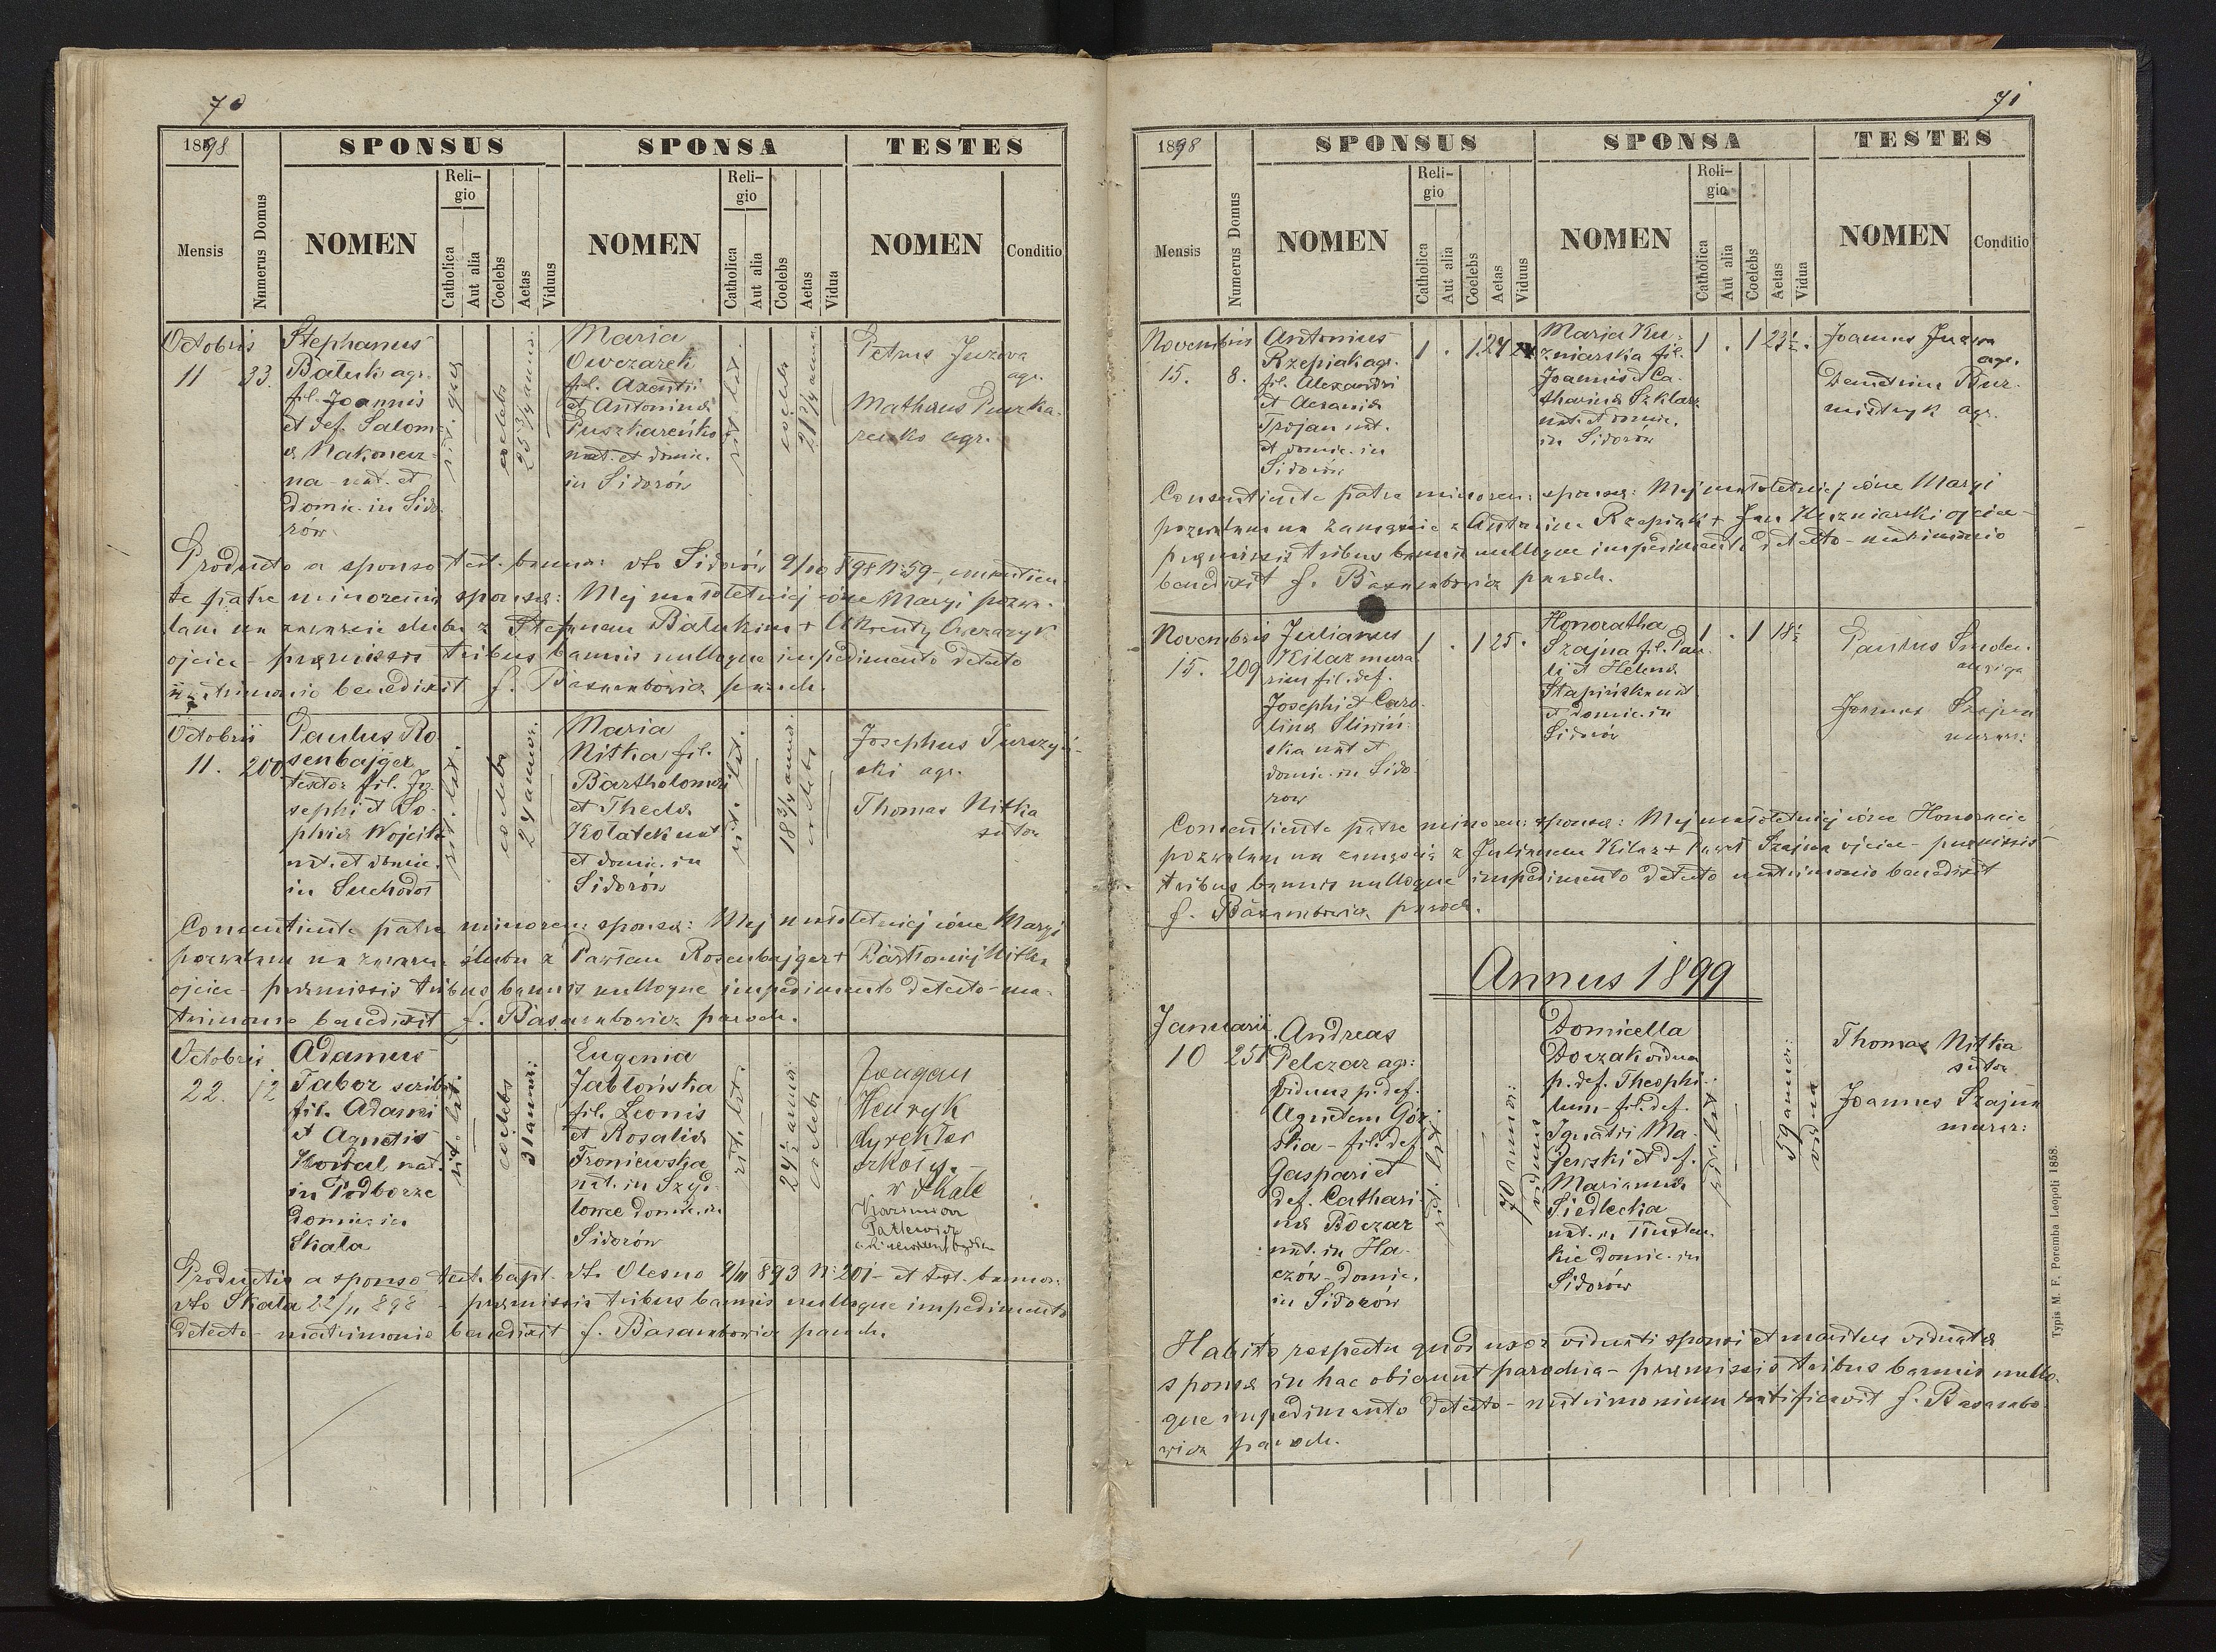 70
1898
SPONSUS
SPONSA
TESTES
Mensis
Numerus Domus
NOMEN
Religio
Catholica
Aut alia
Coelebs
Aetas
Viduus
NOMEN
Religio
Catholica
Aut alia
Coelebs
Aetas
Vidua
NOMEN
Conditio
Octobris
11
33.
Stephanus
Bałuk agr.
fil. Joannis
et def. Salom
æ Nakonecz
na - nat. et
domic. in Sido
rów
coelebs
25 3/4 annor.
Maria
Owczarek
fil. Axentii
et Antoninæ
Puszkareńko
nat. et domic.
in Sidorów
rit. lat.
coelebs
21 3/4 annor
Petrus Juzwa
agr.
Mathæus Puszka-
renko agr.
Producto a sponso test. bannor: dto Sidorów 9/10 898 N: 59 - consentien
te patre minorennis sponsæ: Mej małoletniej córce Maryi pozwa-
lam na zawarcie ślubu z Stefanem Bałukiem + Owczaryk
ojciec - præmissis tribus bannis nulloque impedimento detecto
matrimonio benedixit J. Basarabowicz paroch.
Octobris
11.
200
Paulus Ro
senbajger
textor fil. Jo
sephi et So-
phiæ Wojcik
nat. et domic.
in Suchodoł
rit. lat.
coelebs
24 annor.
Maria
Nitka fil.
Bartholomæi
et Theclæ
Kołatek nat
et domic. in
Sidorów
rit. lat.
18 3/4 annor.
coelebs
Josephus Turzyń-
ski agr.
Thomas Nitka
sutor
Consentiente patre minoren: sponsæ: Mej małoletniej córce Maryi
pozwalam na zawarcie ślubu z Pawłem Rosenbajger + Bartłomiej Nitka
ojciec - præmissis tribus bannis nulloque impedimento detecto - ma-
trimonio benedixit J. Basarabowicz paroch.
Octobris
22.
12
Adamus
Tabor scriba
fil. Adami
et Agnetis
Kowal nat.
in Podborze
domic. in
Skała
rit. lat.
coelebs
31 annor:
Eugenia
Jabłońska
fil. Leonis
et Rosaliæ
Froniewska
nat. in Szyd-
łowce domic. in
Sidorów
rit. lat.
24 1/2 annor:
coelebs
Henryk
dyrektor
szkoły
w Skale
Kazimierz
Productis a sponso test. bapt. dto Olesno 9/11 893 N: 201 - et test. bannor:
dto Skała 22/11 898 - præmissis tribus bannis nulloque impedimento
detecto - matrimonio benedixit J. Basarabowicz paroch.
71
1898
SPONSUS
SPONSA
TESTES
Mensis
Numerus Domus
NOMEN
Religio
Catholica
Aut alia
Coelebs
Aetas
Viduus
NOMEN
Religio
Catholica
Aut alia
Coelebs
Aetas
Vidua
NOMEN
Conditio
Novembris
15.
8.
Antonius
Rzepiak agr.
fil. Alexandri
et Acsaniæ
Trojan nat.
et domic. in
Sidorów
1 . 1 24
Maria Ku-
zniarska fil.
Joannis et Ca-
tharinæ Szklarz
nat. et domic.
in Sidorów
1 . 1 23 1/2 .
Joannes Juzwa
agr.
Demetrius Bur-
mistryk agr.
Consentiente patre minoren: sponsæ: Mej małoletniej córce Maryi
pozwalam na zamęście z Antonim Rzepiak + Jan Kuzniarski ojciec -
præmissis tribus bannis nulloque impedimento detecto - matrimonio
benedixit J. Basarabowicz paroch.
Novembris
15.
209
Julianus
Kilar mura
rius fil. def.
Josephi et Caro
linæ Sliwiń-
ska nat et
domic. in Sido
row
1 . 1 25 .
Honoratha
Szajna fil. Pau
li et Helenæ
Stapińska nat
et domic. in
Sidorów
1 . 1 18 1/2
Paulus Smoleń
auriga
Joannes Szajna
murar:
Consentiente patre minoren: sponsæ: Mej małoletniej córce Honoracie
pozwalam na zamęście z Julianem Kilar + Paweł Szajna ojciec - præmissis
tribus bannis nulloque impedimento detecto matrimonio benedixit
J. Basarabowicz paroch.
Annus 1899
Januarii
10
251
Andreas
Pelczar agr:
viduus p. def.
Agnetem Gór
ska - fil. def.
Gaspari et
def. Cathari
næ Boczar
nat. in Ha-
czów - domic.
in Sidorów
rit. lat.
70 annor:
viduus
Domicella
Boczak vidua
p. def. Theophi-
lum - fil. def.
Ignatii Ma-
jewski et def.
Mariannæ
Siedlecka
nat. in Tłusteń-
kie domic. in
Sidorów
rit. lat.
59 annor:
vidua
Thomas Nitka
sutor
Joannes Szajna
murar:
Habito respectu quod uxor viduati sponsi et maritus viduatæ
sponsæ in hac obierunt parochia - præmissis tribus bannis nullo-
que impedimento detecto - matrimonium ratificavit J. Basarabo
wicz paroch.
Typis M. F. Poremba Leopoli 1858.